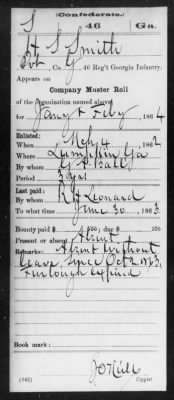 S
Confederate.
46 Ga.
S Smith
Pvt, Co. , 46 Reg't Georgia Infantry.
Appears on
Company Muster Roll
of the organization named above,
for Jany & Feby, 1864
Enlisted:
When Mch 4, 1862
Where Lumpkin Ga
By whom
Period 3 yrs
Last paid:
By whom R H Leonard
To what time June 30, 1863
Bounty paid $ 100; due $ 100
Present or absent Absent
Remarks: Absent without
leave since Oct 2 1863,
Furlough expired
Book mark:
(642)
Copyist.